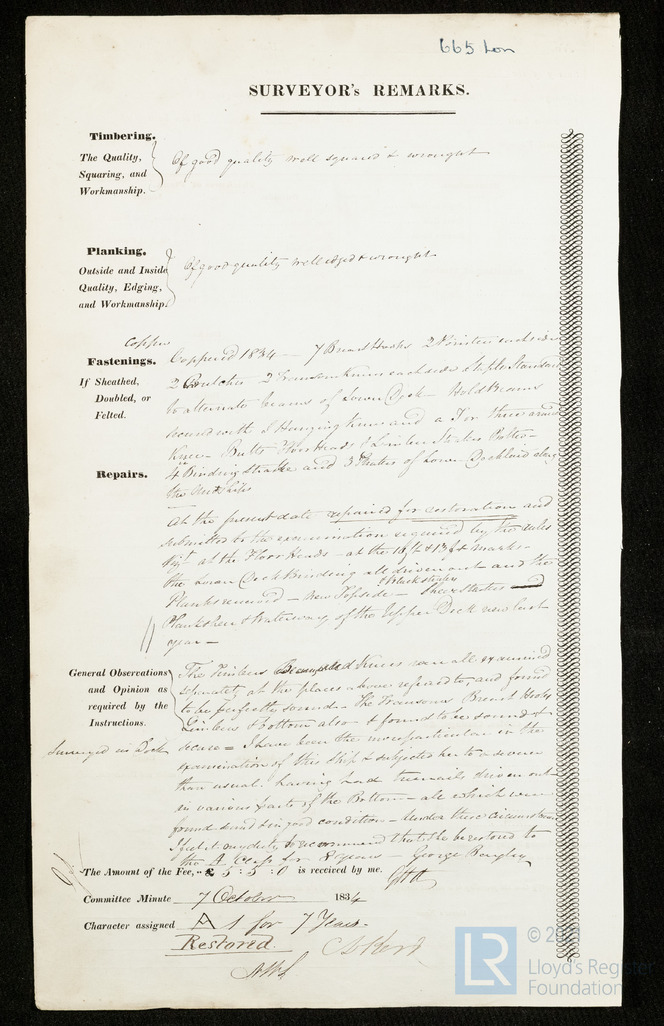 665 Lon
SURVEYOR's REMARKS.
Timbering.
The Quality, Squaring, and Workmanship.
Of good quality well squared & wrought
Planking.
Outside and Inside Quality, Edging, and Workmanship.
Of good quality well edged & wrought
Copper
Fastenings.
If Sheathed, Doubled, or Felted.
Coppered 1834 — 7 Breast Hooks 2 each side
2 2 Transom Knees each side Staple Standard
to alternate beams of Lower Deck — Hold Beams
secured with 2 Hanging Knees and a Fore three armed
Knee — Butts Floor Heads & Limber Strakes Bolted —
Repairs.
4 Binding Strakes and 3 Strakes of Lower Deck laid along
the
At the present date repaired for restoration and
submitted to the examination required by the rules
Vizt at the Floor Heads — at the & 13 ft marks —
the Lower Deck Binding all driven out and the
Planks renewed — New Topside — & Black strakes Sheerstrakes and
Planksheer & Waterway of the Upper Deck new last
year —
General Observations and Opinion as required by the Instructions.
The Timbers Beam ends & Knees were all examined
at the places above refered to, and found
to be perfectly sound — The Transoms Breast Hooks
Timbers & bottom also & found to be sound &
Surveyed in Dock
secure = I have been the more particular in the
examination of this Ship & subjected her to a severer
than usual, having had treenails driven out
in various parts of the Bottom — all which were
found sound & in good condition — Under these circumstances
I feel it my duty to recommend that she be restored to
the A Class for 8 years — George Bayley
The Amount of the Fee, £ 5 : 5 : 0 is received by me.
Committee Minute 7 October 1834
Character assigned A 1 for 7 Years
Restored
LR
©
Lloyd's Register
Foundation